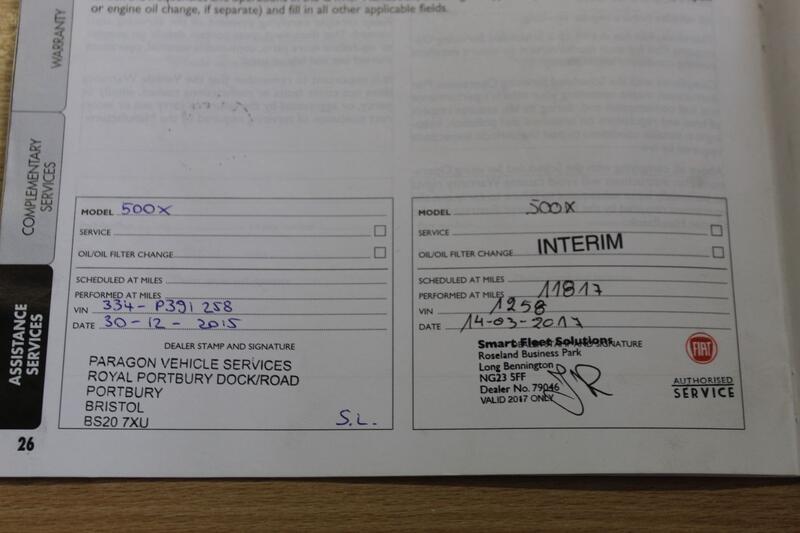 or engine oil change, if separate) and fill in all other applicable fields.
WARRANTY
COMPLEMENTARY
SERVICES
ASSISTANCE
SERVICES
26
MODEL 500X
SERVICE
OIL/OIL FILTER CHANGE
SCHEDULED AT MILES
PERFORMED AT MILES
VIN 334-P391 258
DATE 30-12-2015
DEALER STAMP AND SIGNATURE
PARAGON VEHICLE SERVICES
ROYAL PORTBURY DOCK/ROAD
PORTBURY
BRISTOL
BS20 7XU
S.L.
MODEL 500X
SERVICE
OIL/OIL FILTER CHANGE INTERIM
SCHEDULED AT MILES
PERFORMED AT MILES 11817
VIN 1258
DATE 14-03-2017
DEALER STAMP AND SIGNATURE
Smart Fleet Solutions
Roseland Business Park
Long Bennington
NG23 5FF
Dealer No. 79046
VALID 2017 ONLY
FIAT
AUTHORISED
SERVICE